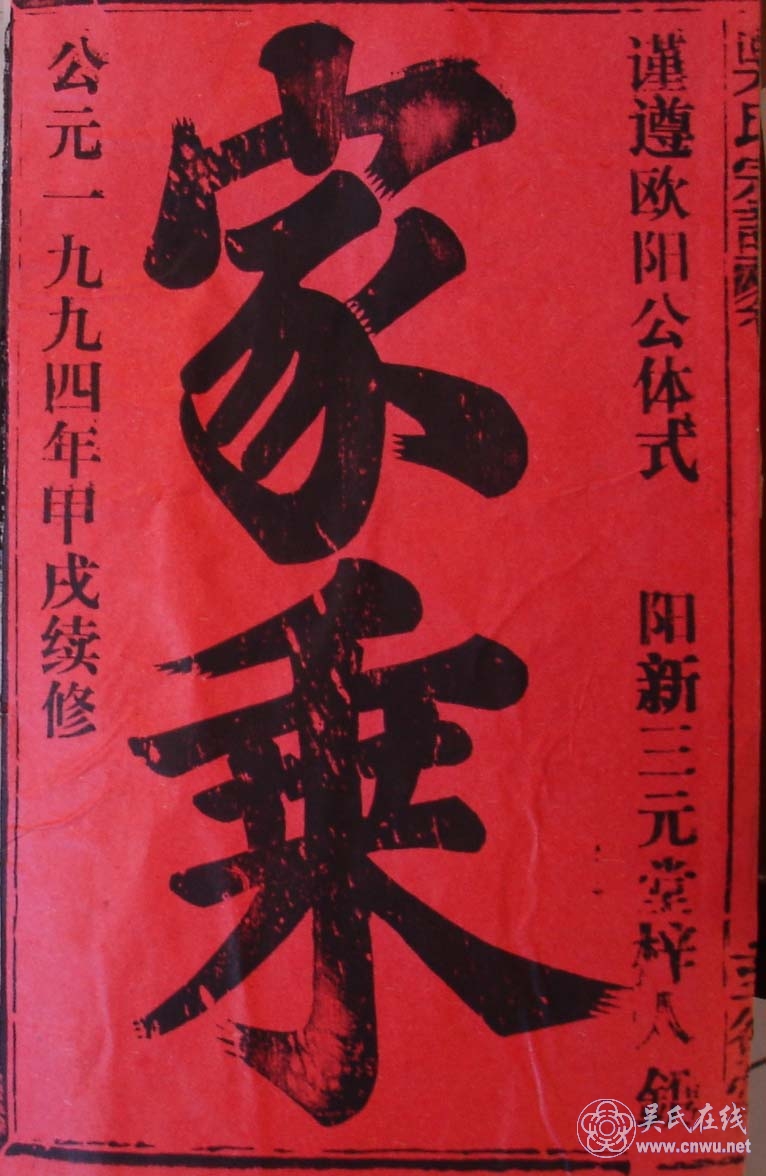 吴氏宗谱
谨遵欧阳公体式 阳新三元堂梓人
家乘
公元一九九四年甲戌续修
吴氏在线
www.cnwu.net